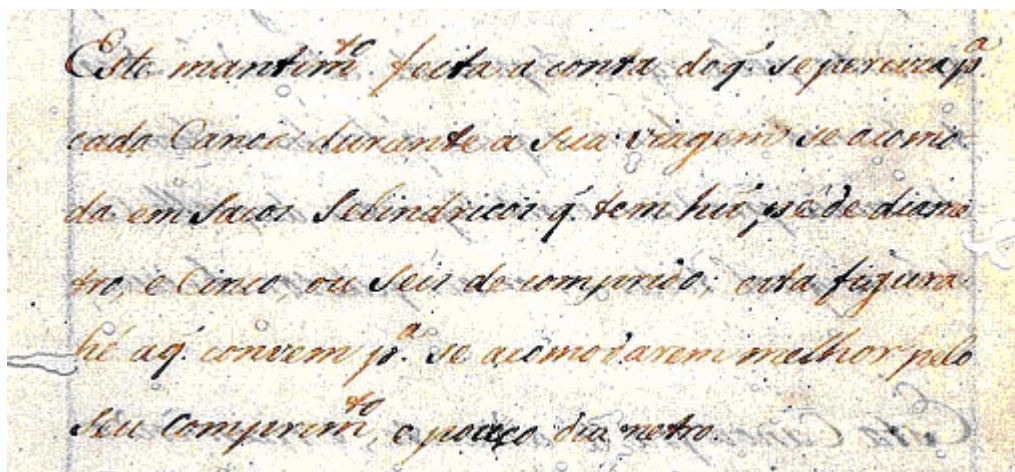 Este mantim.to feita a conta do q̃ se perciza p.a
cada Canoa durante a sua viagem se acomo-
da em Sacos Selindricos q̃ tem hũ pé de diame
tro, e Cinco, ou Seis de comprido; esta figura
hé aq̃ convem p.a se acomodarem melhor pelo
seu Comprim.to, e pouco diametro.